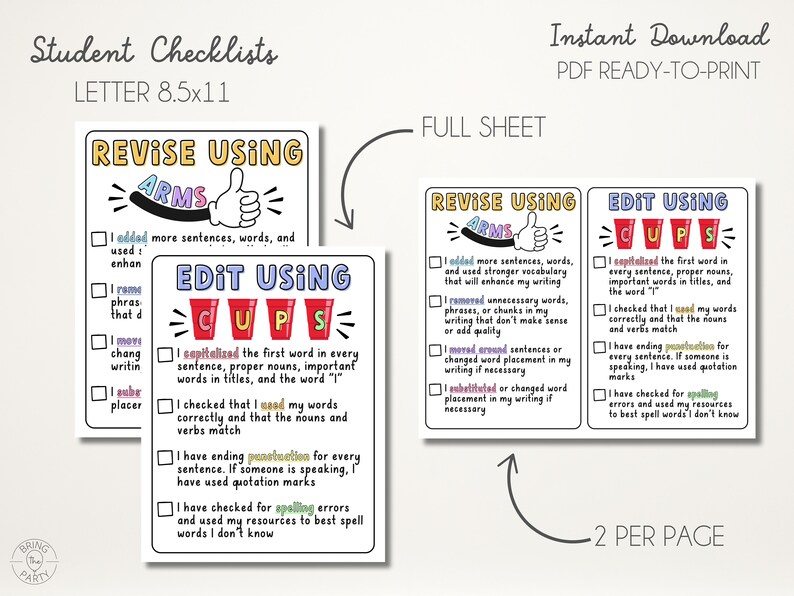 Student Checklists
LETTER 8.5x11
Instant Download
PDF READY-TO-PRINT
FULL SHEET
REVISE USING
ARMS
I added more sentences, words, and
used s
enhan
I remo
phras
that d
I move
chang
writin
I subs
placem
EDIT USING
CUPS
I capitalized the first word in every
sentence, proper nouns, important
words in titles, and the word "I"
I checked that I used my words
correctly and that the nouns and
verbs match
I have ending punctuation for every
sentence. If someone is speaking, I
have used quotation marks
I have checked for spelling errors
and used my resources to best spell
words I don't know
REVISE USING
ARMS
I added more sentences, words,
and used stronger vocabulary
that will enhance my writing
I removed unnecessary words,
phrases, or chunks in my
writing that don't make sense
or add quality
I moved around sentences or
changed word placement in my
writing if necessary
I substituted or changed word
placement in my writing if
necessary
EDIT USING
CUPS
I capitalized the first word in
every sentence, proper nouns,
important words in titles, and
the word "I"
I checked that I used my words
correctly and that the nouns
and verbs match
I have ending punctuation for
every sentence. If someone is
speaking, I have used quotation
marks
I have checked for spelling
errors and used my resources
to best spell words I don't know
2 PER PAGE
BRING
the
PARTY